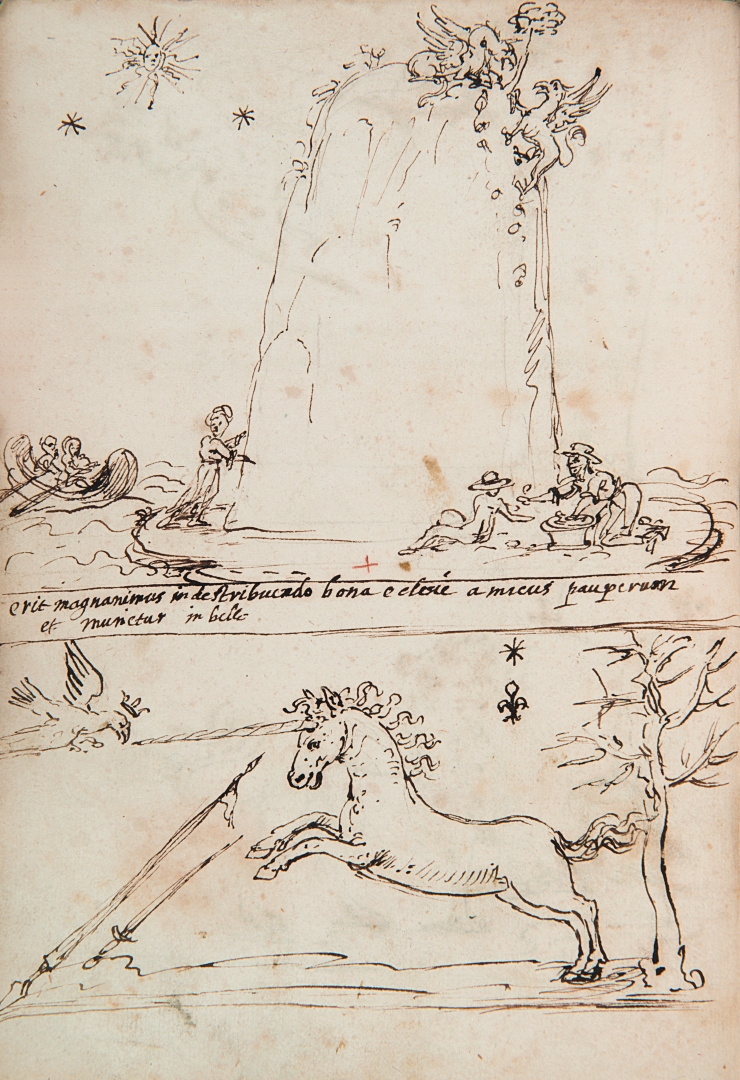 erit magnanimus in destribuendo bona eclesie amicus pauperum
et munetur in bello